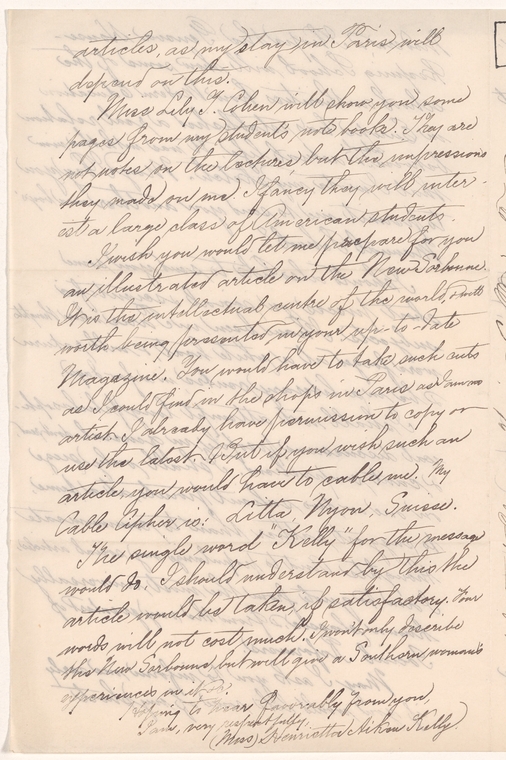 articles, as my stay in Paris will
depend on this.
Miss Lily T. Cohen will show you some
pages from my student's note book. They are
not notes on the lectures but the impressions
they made on me. I fancy they will inter-
est a large class of American students.
I wish you would let me prepare for you
an illustrated article on the New Sorbonne.
It is the intellectual centre of the world, & will
worth being presented in your up-to-date
Magazine. You would have to take such cuts
as I could find in the shops in Paris as I am no
artist. I already have permission to copy or
use the latest. But if you wish such an
article, you would have to cable me. My
Cable Cipher is: Litta Nyon, Suisse.
The single word "Kelly" for the message
would do. I should understand by this the
article would be taken, if satisfactory. Four
words will not cost much. I won't only describe
this New Sorbonne, but will give a Southern woman's
experiences in it
Hoping to hear favorably from you,
I am, very respectfully,
(Miss) Henrietta Aiken Kelly.